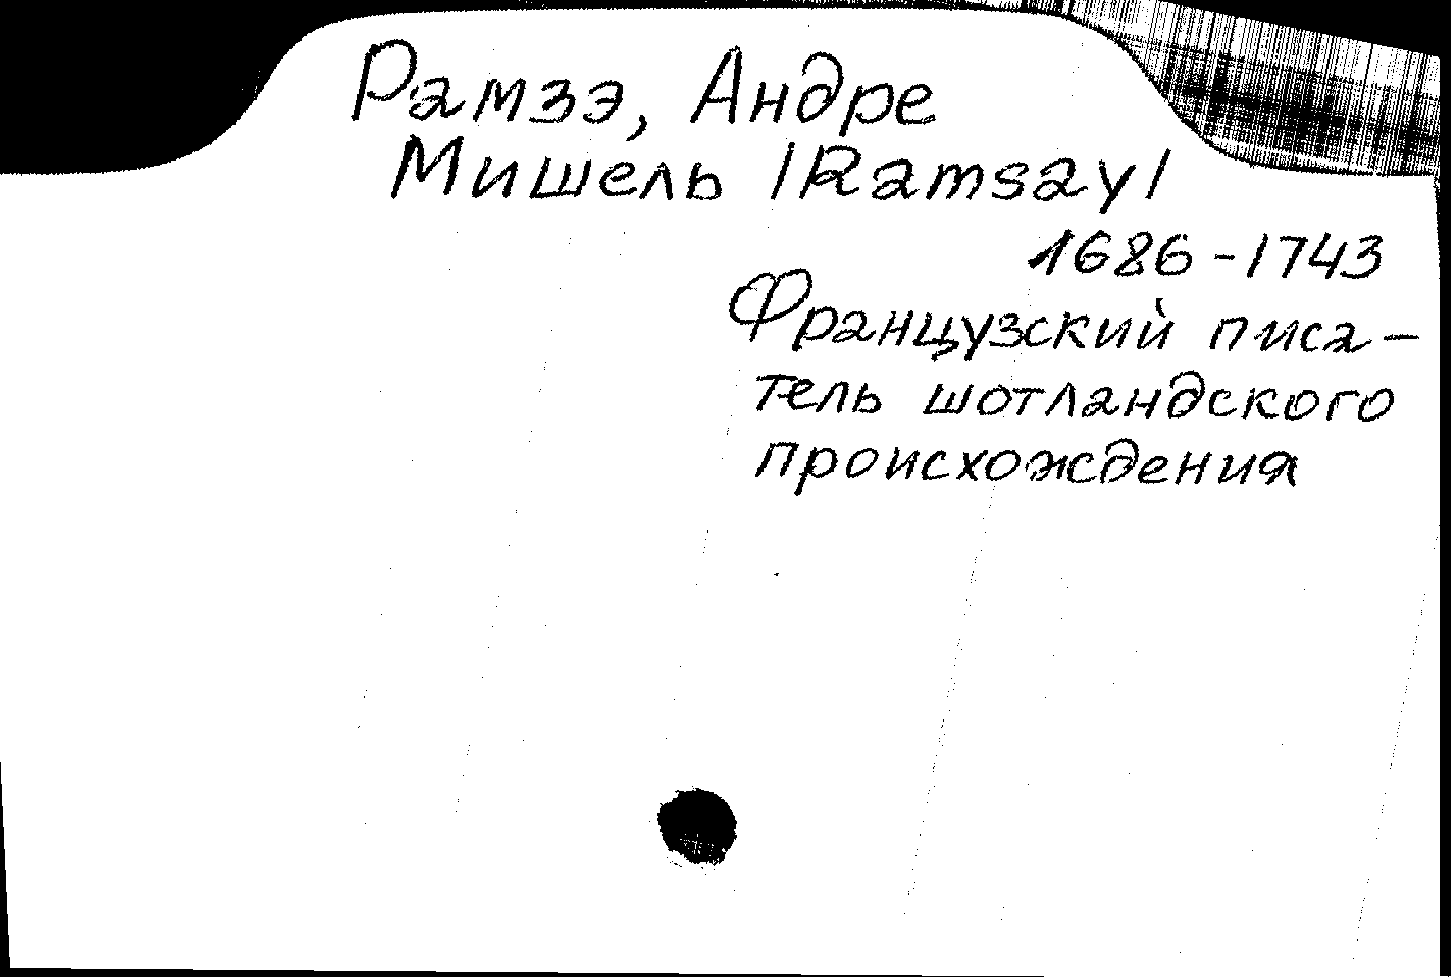 Рамзэ, Андре
Мишель /Ramsay/
1686-1743
Французский писа-
тель шотландского
происхождения